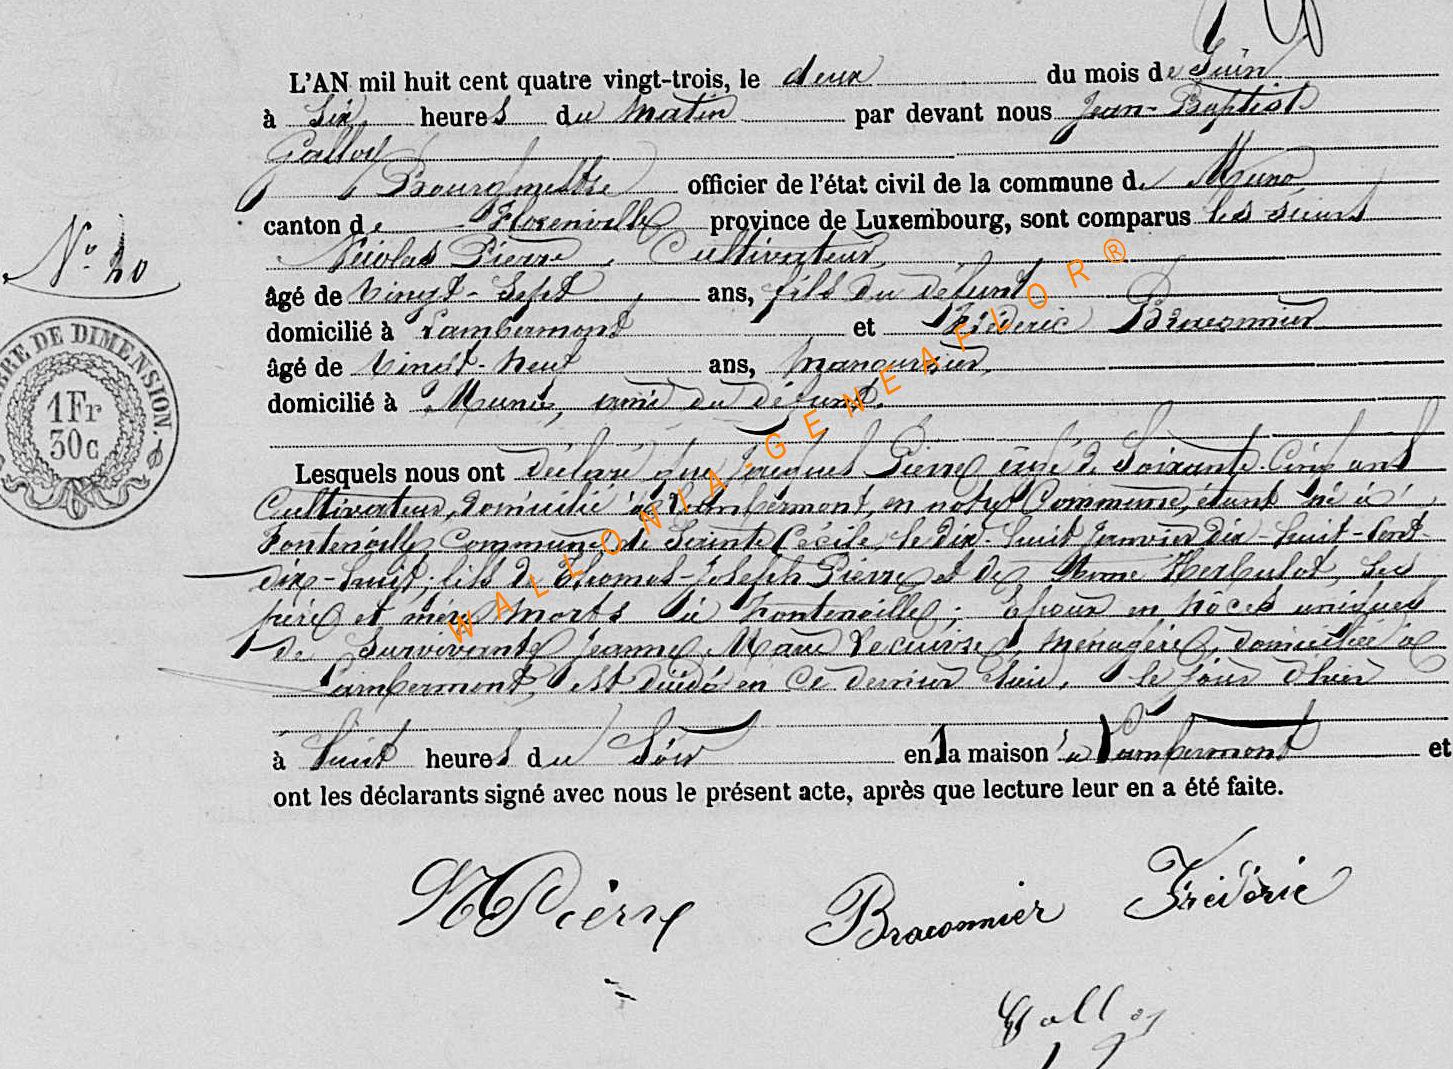 L'AN mil huit cent quatre vingt-trois, le deux du mois de Juin
à Six heures du Matin par devant nous Jean-Baptiste
Bourgmestre officier de l'état civil de la commune de Muno
canton de Florenville province de Luxembourg, sont comparus les sieurs
Nicolas Pierre, Cultivateur,
N° 20
âgé de Vingt-Sept ans, fils du défunt
domicilié à Lambermont et Fréderic Braconnier
âgé de Vingt-neuf ans, manouvrier,
domicilié à Muno, ami du défunt.
TIMBRE DE DIMENSION
1 Fr 30 c
Lesquels nous ont déclaré que Jacques Pierre âgé de Soixante-Cinq ans
Cultivateur, domicilié à Lambermont, en notre Commune, étant né à
Fontenoille, Commune de Sainte Cécile, le dix-huit Janvier dix-huit-Cent-
dix-huit, fils de Thomas-Joseph Pierre et de Marie Herbulot, ses
père et mère morts à Fontenoille; Epoux en nôces uniques
de Survivante Jeanne Marie ménagère, domiciliée à
Lambermont, est décédé en ce dernier lieu, le jour d'hier
à huit heures du Soir en la maison à Lambermont et
ont les déclarants signé avec nous le présent acte, après que lecture leur en a été faite.
N Pierre Braconnier Fréderic
WALLONIA-GENEAFLOR®